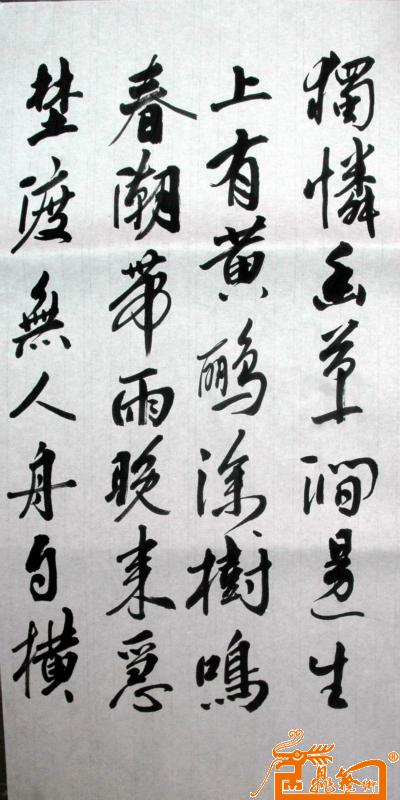 獨憐幽草澗邊生
上有黄鸝深樹鳴
春潮帶雨晚来急
埜渡無人舟自横